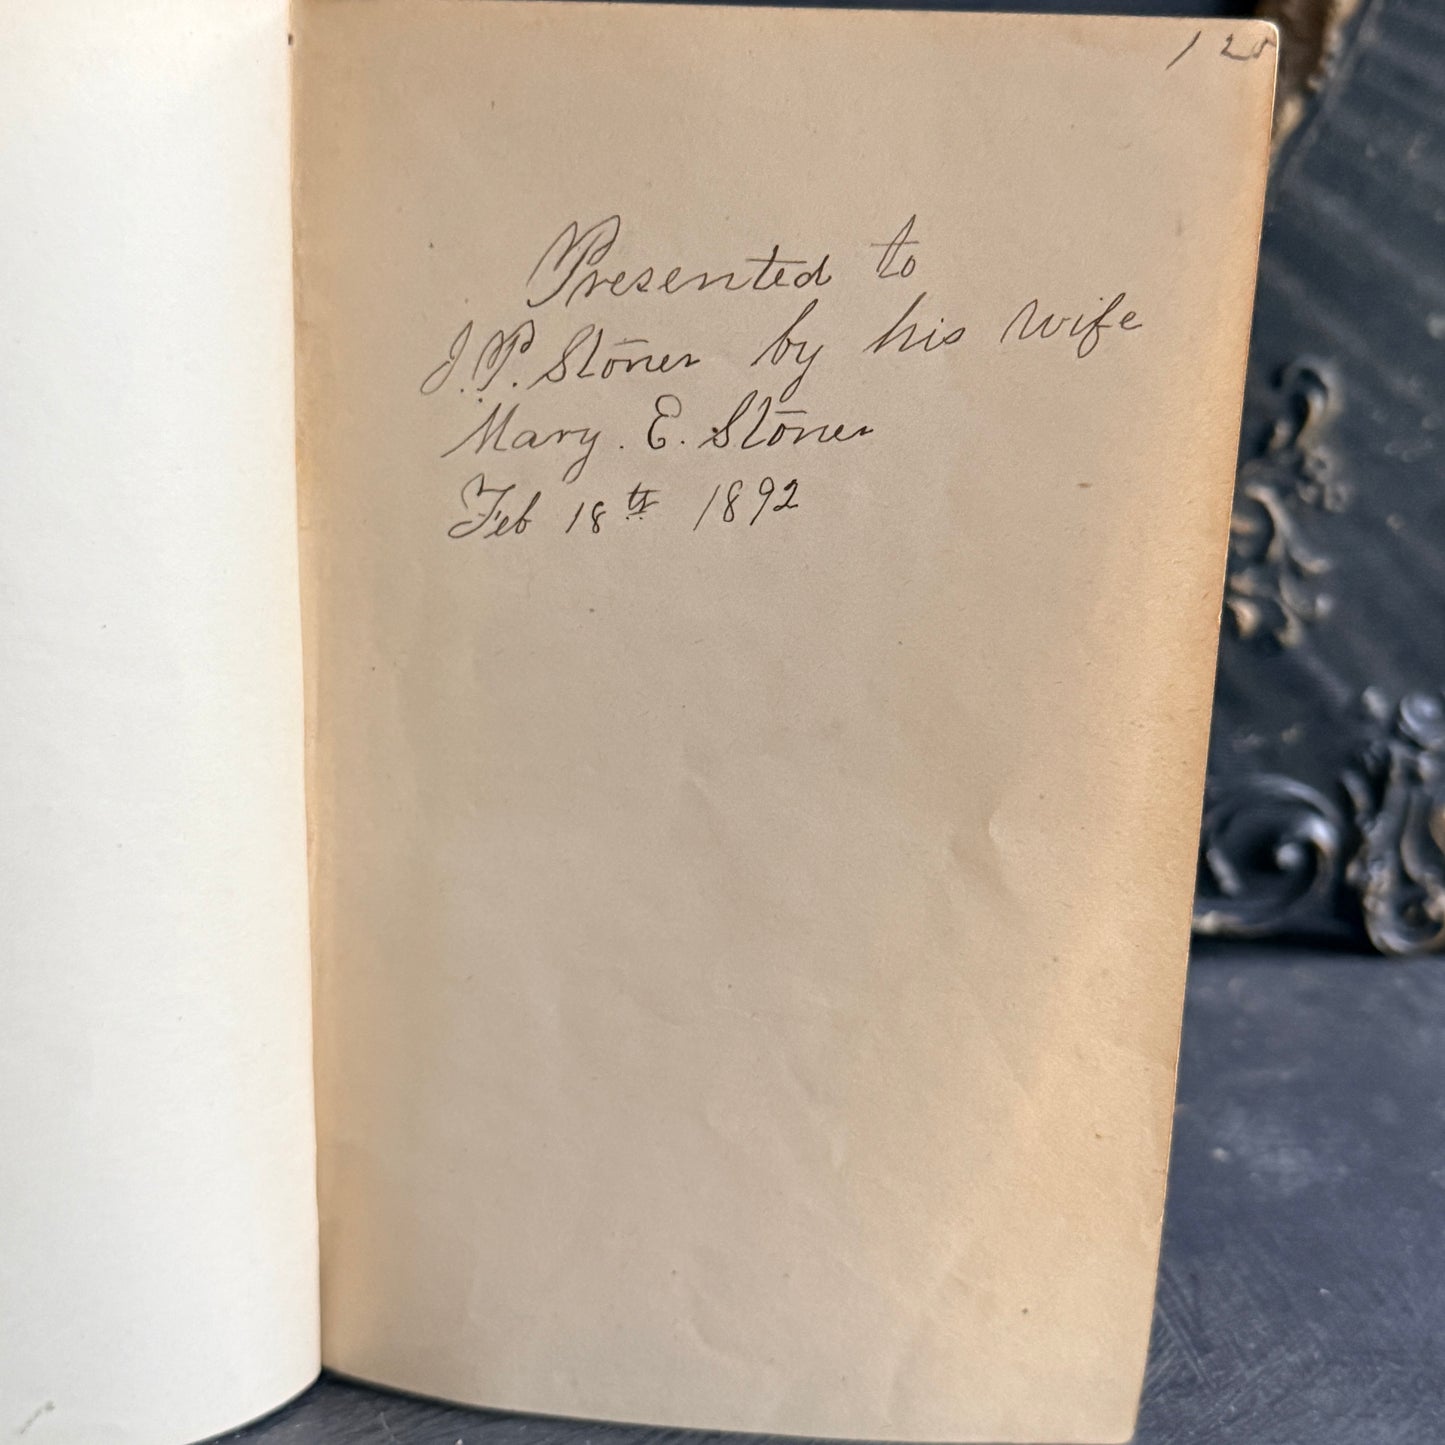 120
Presented to
J. P. Stoner by his wife
Mary. E. Stoner
Feb 18th 1892